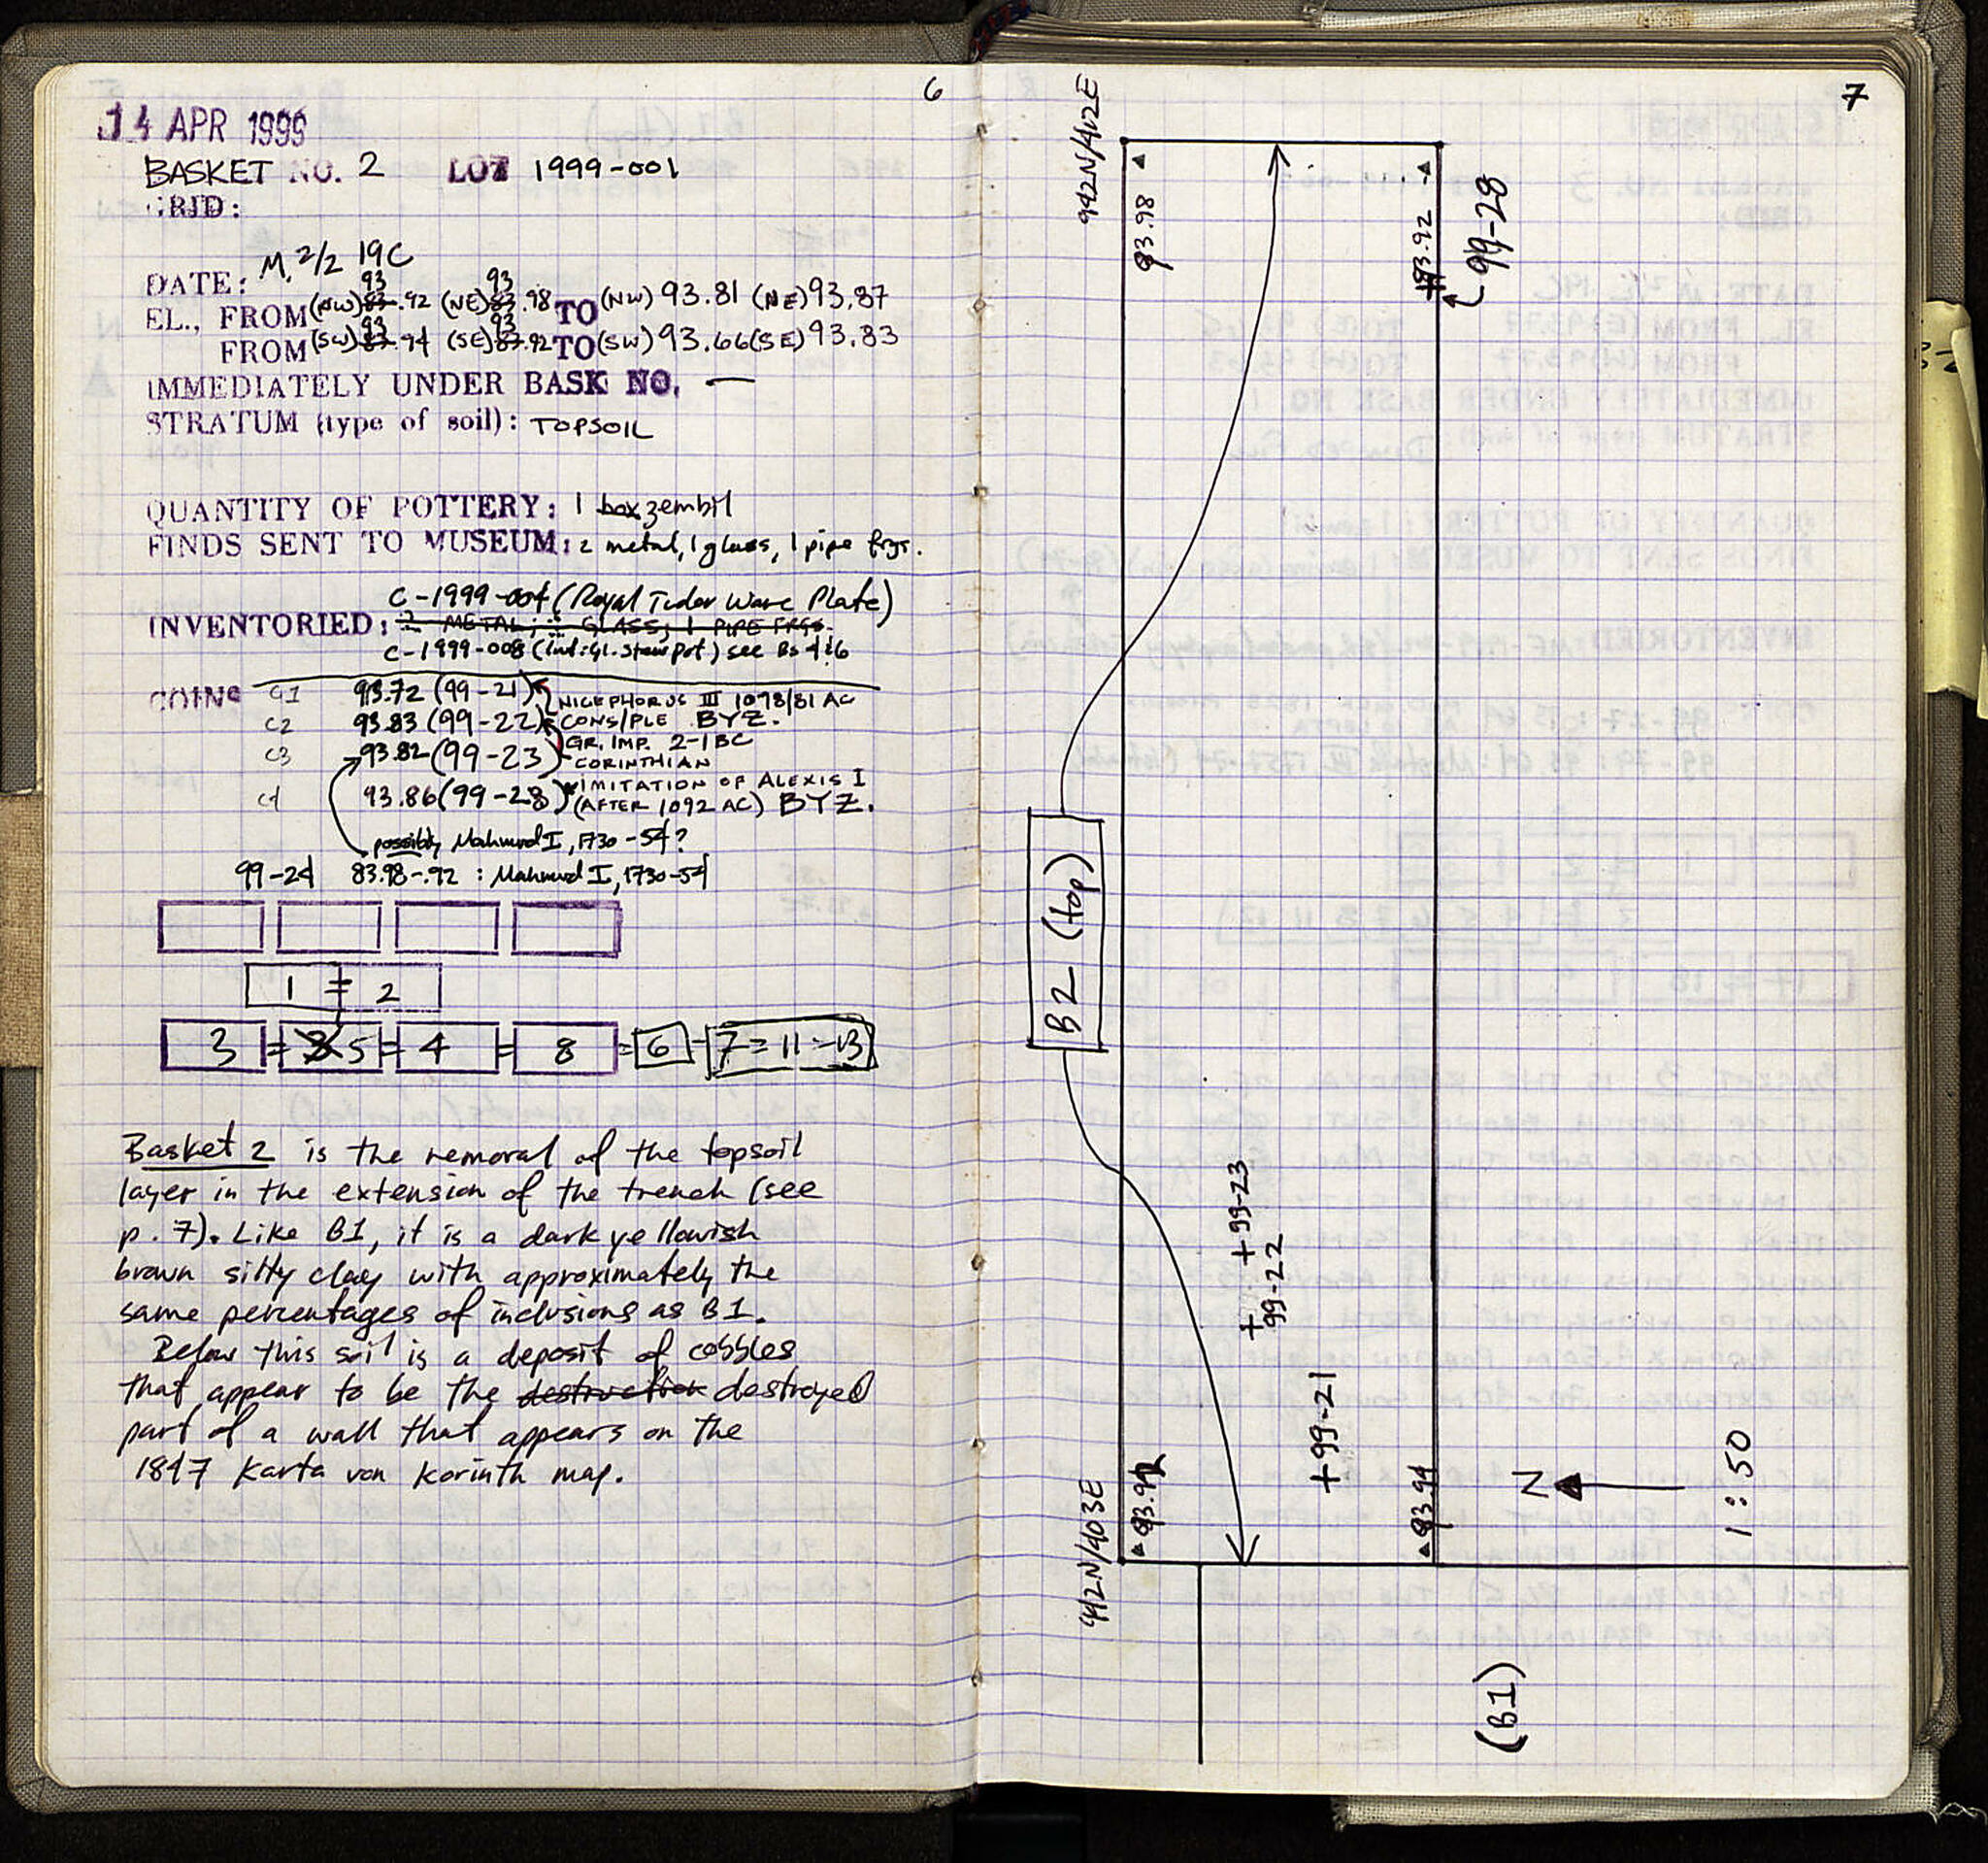 6
14 APR 1999
BASKET NO. 2 LOT 1999-001
GRID:
DATE: M. 2/2 19C
93 93
EL., FROM (NW) 83.92 (NE) 83.98 TO (NW) 93.81 (NE) 93.87
93 93
FROM (SW) 83.94 (SE) 83.92 TO (SW) 93.66 (SE) 93.83
IMMEDIATELY UNDER BASK NO. —
STRATUM (type of soil): TOPSOIL
QUANTITY OF POTTERY: 1 box zembil
FINDS SENT TO MUSEUM: 2 metal, 1 glass, 1 pipe frgs.
C-1999-004 (Royal Tudor Ware Plate)
INVENTORIED: 2 METAL; GLASS; 1 PIPE FRGS.
C-1999-008 (int: Gl. stew pot) see Bs 4&6
COINS C1 93.72 (99-21) NICEPHORUS III 1078/81 AC
C2 93.83 (99-22) CONS/PLE BYZ.
GR. IMP. 2-1 BC
C3 93.82 (99-23) CORINTHIAN
IMITATION OF ALEXIS I
C4 93.86 (99-28) (AFTER 1092 AC) BYZ.
possibly Mahmud I, 1730-54?
99-24 83.98-.92 : Mahmud I, 1730-54
1 = 2
3 = 3 5 = 4 = 8 = 6 - 7 = 11 = 13
Basket 2 is the removal of the topsoil
layer in the extension of the trench (see
p. 7). Like B1, it is a dark yellowish
brown silty clay with approximately the
same percentages of inclusions as B1.
Below this soil is a deposit of cobbles
that appear to be the destruction destroyed
part of a wall that appears on the
1847 Karta von Korinth map.
7
942N/412E
93.98
93.92
99-28
B2 (top)
+99-23
+
99-22
+99-21
942N/403E
93.92
93.94
N
1:50
(B1)